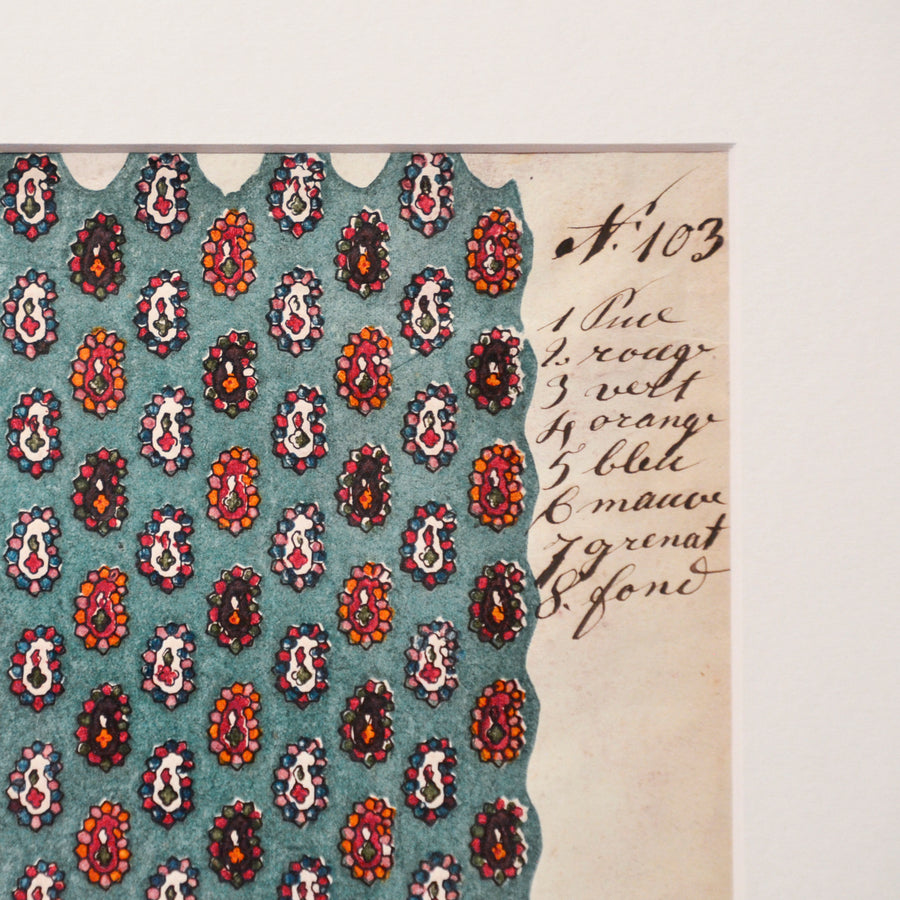 N.º 103
1 Puce
2. rouge
3 vert
4 orange
5 bleu
6 mauve
7 grenat
8. fond